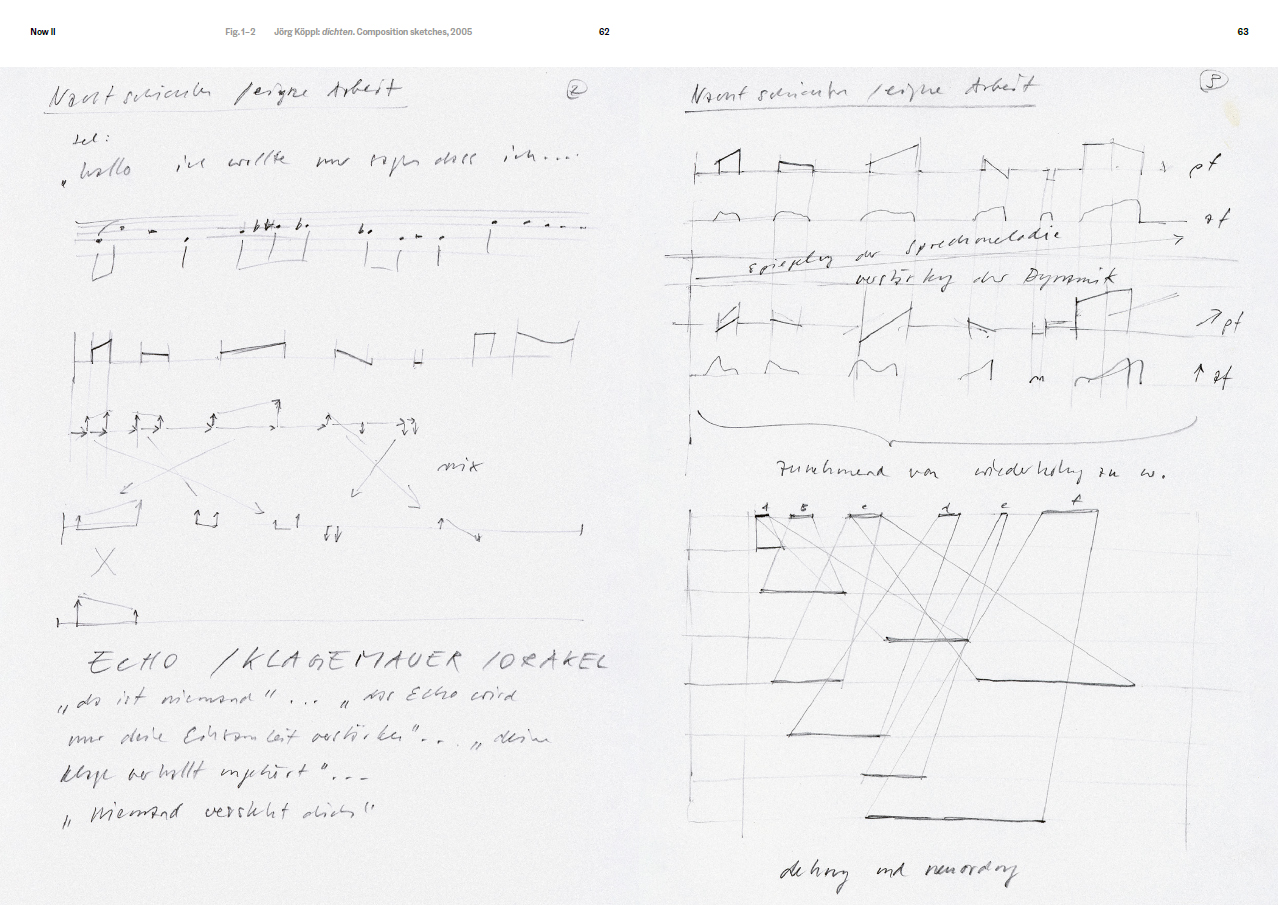 Now II
Fig. 1–2 Jörg Köppl: dichten. Composition sketches, 2005
62
Nachtschichten / eigne Arbeit
2
tel:
„hallo ich wollte nur sagen dass ich....
mix
ECHO / KLAGEMAUER / ORAKEL
„da ist niemand" ... „das Echo wird
nur deine Einsamkeit verstärken" ... „deine
Klage verhallt ungehört" ...
„Niemand versteht dich"
63
Nachtschichten / eigne Arbeit
3
pf
af
Spiegelung der Sprechmelodie
verstärkung der Dynamik
pf
af
zunehmend von wiederholung zu w.
a b c d e f
dehnung und neuordnung